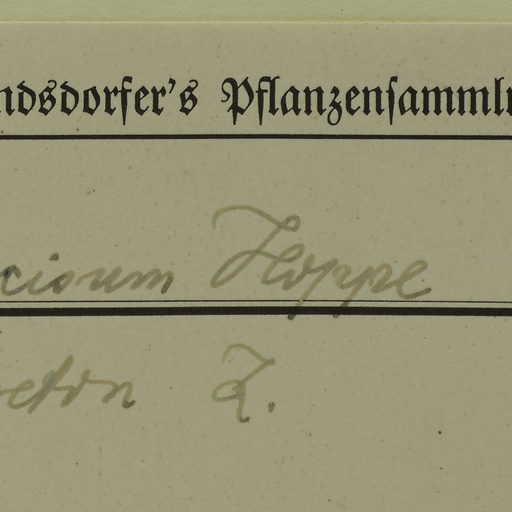 ndsdorfer's Pflanzensamml
ciorum Hoppe
eton L.